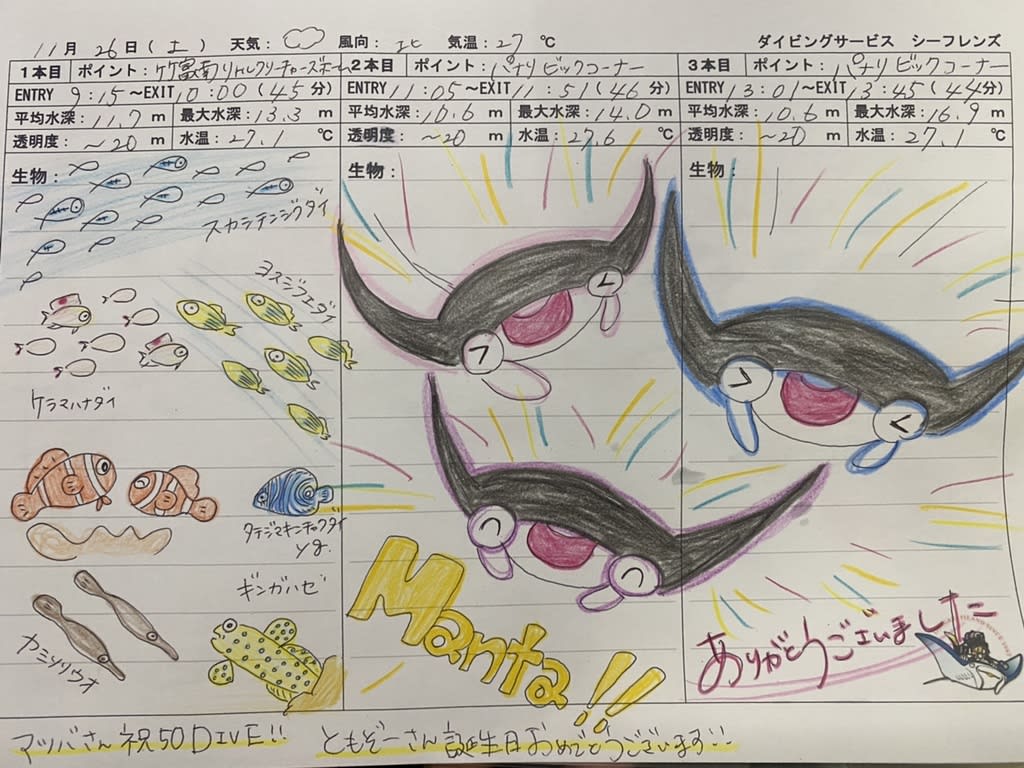 11月 26日(土) 天気: 風向:北 気温:27 ℃ ダイビングサービス シーフレンズ
1本目 ポイント:竹富南リトルクリーチャーズホーム 2本目 ポイント:パナリ ビックコーナー 3本目 ポイント:パナリ ビックコーナー
ENTRY 9:15～EXIT 10:00(45分) ENTRY 11:05～EXIT 11:51(46分) ENTRY 13:01～EXIT 13:45(44分)
平均水深:11.7 m 最大水深:13.3 m 平均水深:10.6 m 最大水深:14.0 m 平均水深:10.6 m 最大水深:16.9 m
透明度:～20 m 水温:27.1 ℃ 透明度:～20 m 水温:27.6 ℃ 透明度:～20 m 水温:27.1 ℃
生物: 生物: 生物:
スカシテンジクダイ
ヨスジフエダイ
ケラマハナダイ
タテジマキンチャクダイ
yg.
ギンガハゼ
カミソリウオ
Manta!!
ありがとうございました
マツバさん祝50DIVE!! ともぞーさん誕生日おめでとうございます!!